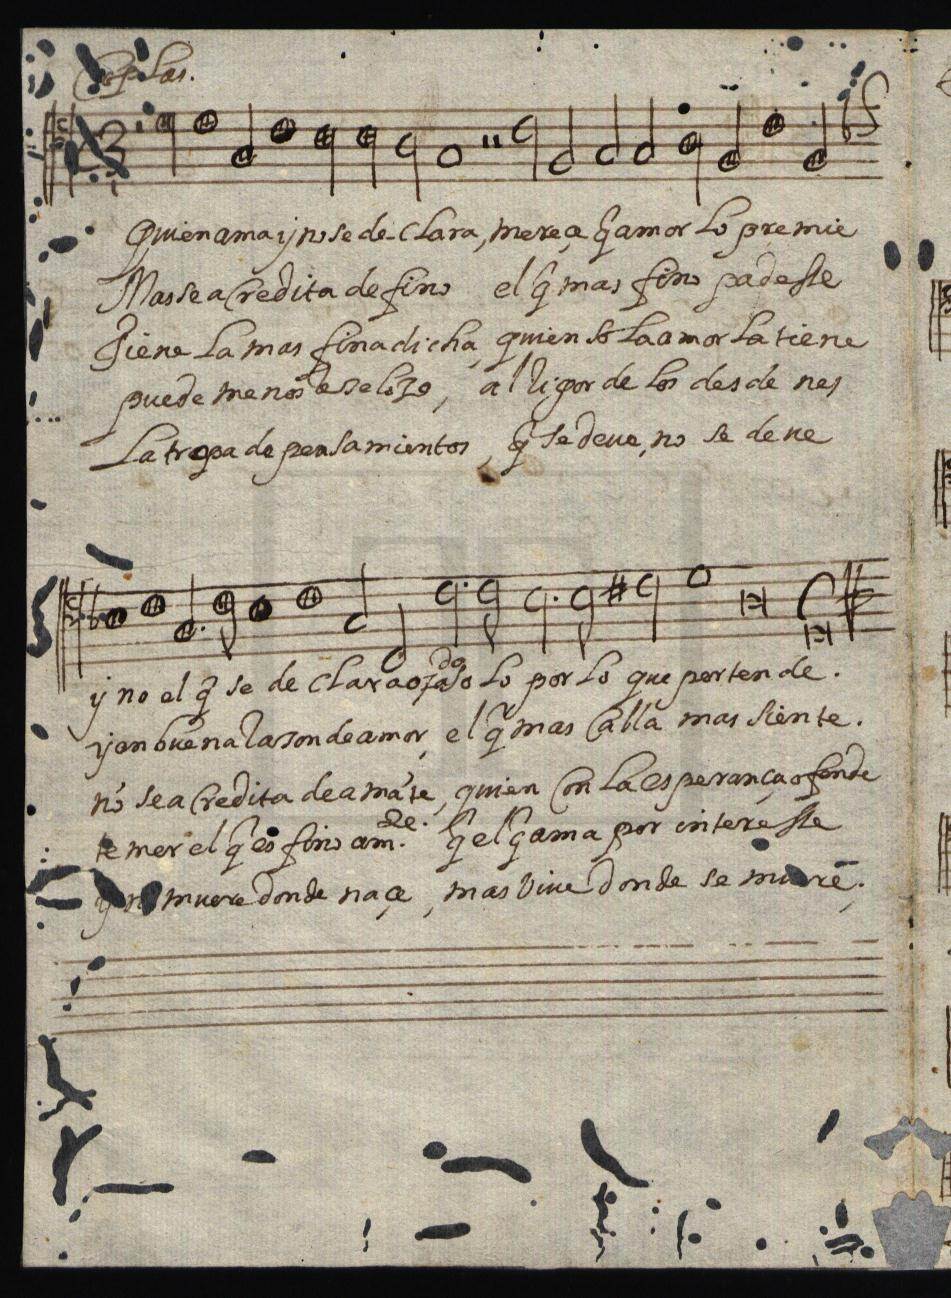 Coplas.
Quien ama y no se de-clara, mereçe q̃ amor Lo premie
Mas se acredita de fino el q̃ mas fino padesse
Tiene La mas fina dicha, quien sola amor La tiene
puede menos al Rigor de los desdenes
La tropa de pensamientos, q̃ se deue, no se deue
y no el q̃ se de clara solo por Lo que pertende.
y en buena Razon de amor, el q̃ mas Calla mas siente.
no se acredita de amãte, quien Con La esperança ofende
temer el q̃ es fino am.te q̃ el q̃ ama por interesse
y no muere donde naçe, mas Viue donde se muere.